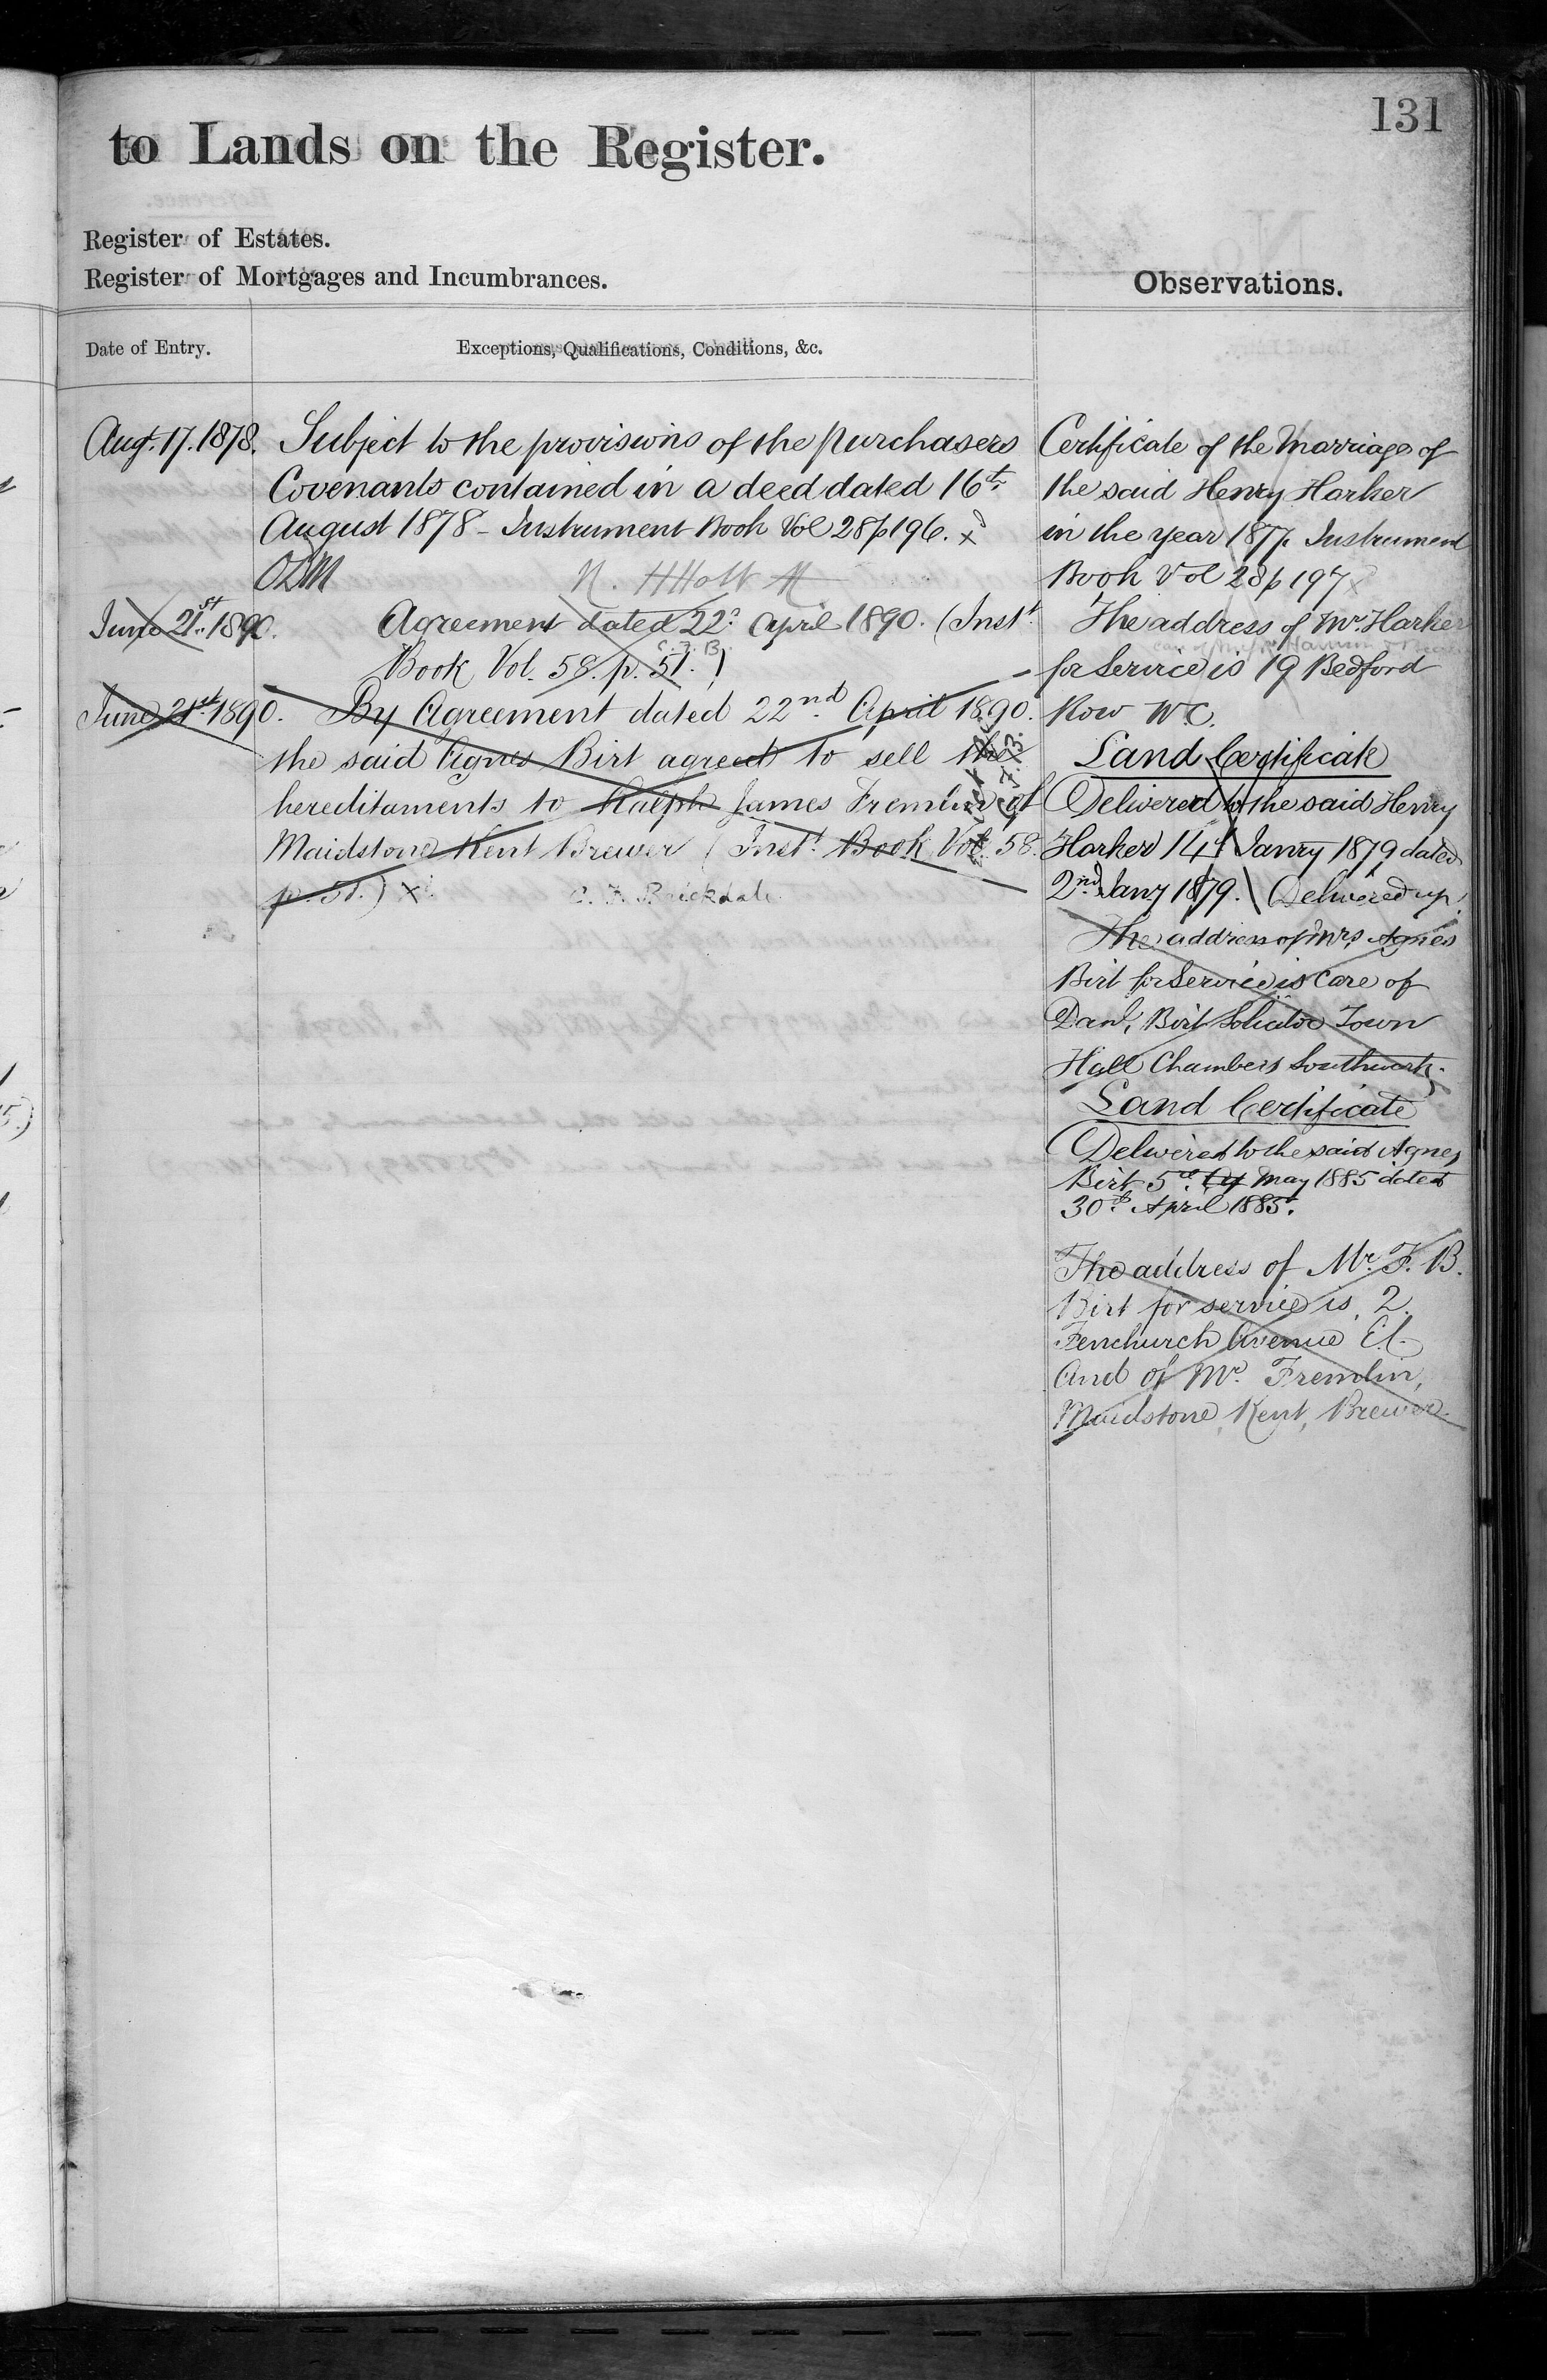 131
to Lands on the Register.
Register of Estates.
Register of Mortgages and Incumbrances.
Observations.
Date of Entry.
Exceptions, Qualifications, Conditions, &c.
Augt. 17. 1878. Subject to the provisions of the purchasers
Covenants contained in a deed dated 16th
August 1878 - Instrument Book Vol 28 p 196. x
June 21st 1890. Agreement dated 22d April 1890. (Instt
C. F. B.
Book Vol. 58. p. 51.)
June 21st 1890. By Agreement dated 22nd April 1890.
the said Agnes Birt agreed to sell the
hereditaments to Ralph James Fremlin of
Maidstone Kent Brewer (Instt Book Vol. 58.
p. 51.) x
C. F. Brickdale
Certificate of the Marriage of
the said Henry Harker
in the year 1877. Instrument
Book Vol 28 p 197
The address of Mr. Harker
for Service is 19 Bedford
Row W.C.
Land Certificate
Delivered to the said Henry
Harker 14th Janry 1879 dated
2nd Jany 1879. Delivered up.
The address of Mrs Agnes
Birt for Service is Care of
Danl. Birt Solicitor Town
Hall Chambers Southwark.
Land Certificate
Delivered to the said Agnes
Birt 5th May 1885 dated
30th April 1885.
The address of Mr. F. B.
Birt for service is 2.
Fenchurch Avenue E.C.
And of Mr. Fremlin,
Maidstone, Kent, Brewer.